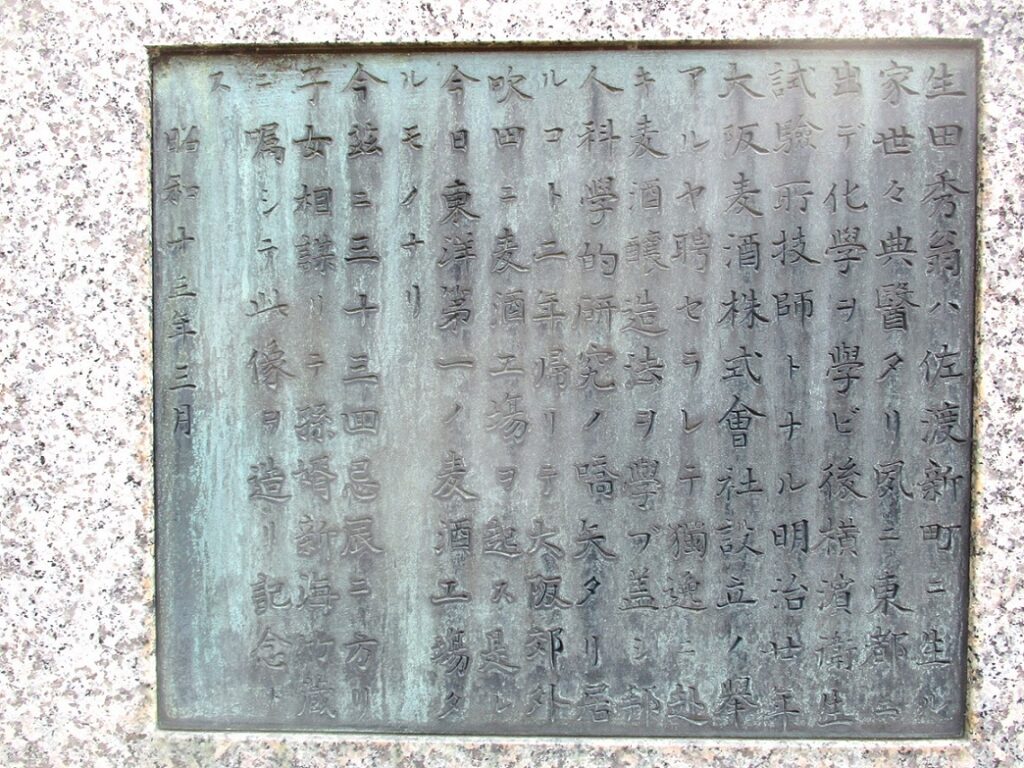 生田秀翁ハ佐渡新町ニ生ル
家世々典醫タリ夙ニ東都ニ
出デ化學ヲ學ビ後横濱衛生
試驗所技師トナル明治廿年
大阪麦酒株式會社設立ノ擧
アルヤ聘セラレテ獨逸ニ赴
キ麦酒釀造法ヲ學ブ蓋シ邦
人科學的研究ノ嚆矢タリ居
ルコト二年帰リテ大阪郊外
吹田ニ麦酒工場ヲ起ス是レ
今日東洋第一ノ麦酒工場タ
ルモノナリ
今茲ニ三十三回忌辰ニ方リ
子女相謀リテ孫婿新海竹蔵
ニ嘱シテ此像ヲ造リ記念ト
ス
昭和十三年三月